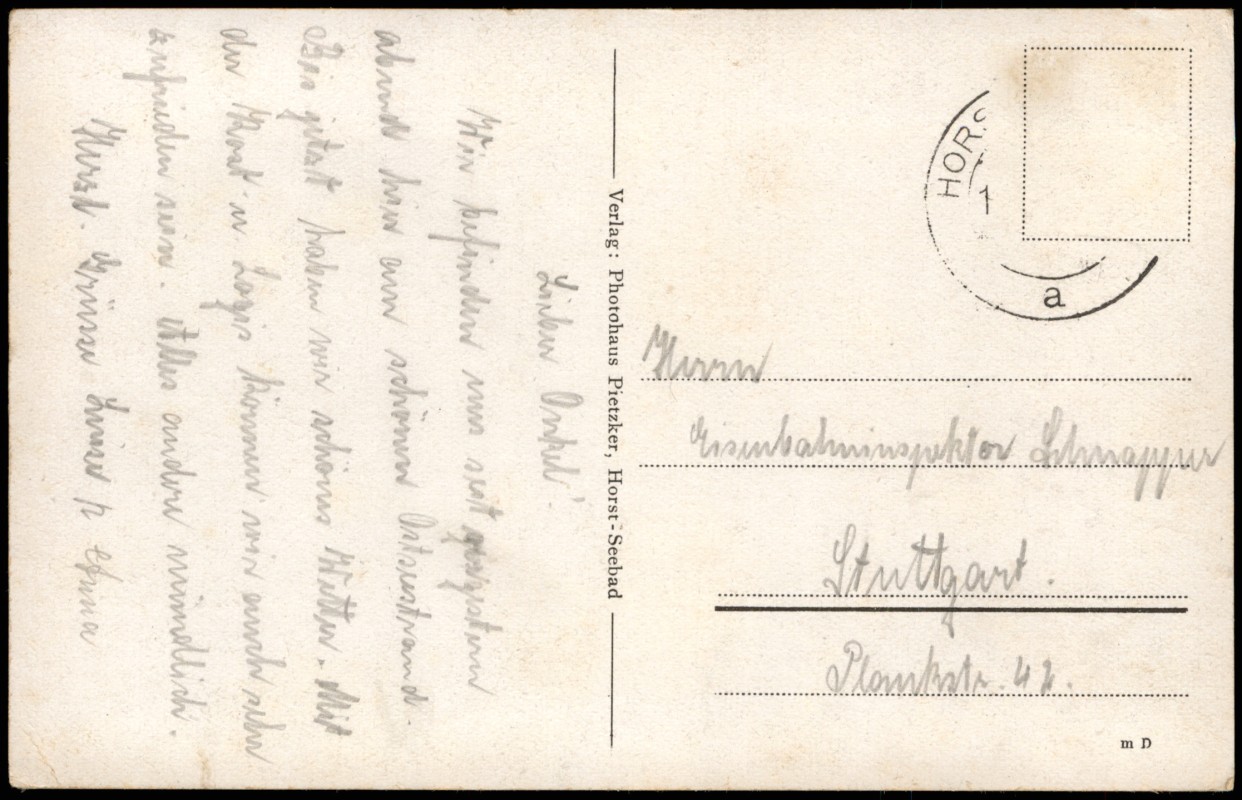 Lieber Onkel!
Wir befinden uns seit gestern
abend hier am schönen Ostseestrand.
Bis jetzt haben wir schönes Wetter. Mit
der Kost u. Logis können wir auch sehr
zufrieden sein. Alles andere mündlich.
Herzl. Grüsse Luise
Verlag: Photohaus Pietzker, Horst-Seebad
HORS
1
a
Herrn
Eisenbahninspektor
Stuttgart.
Plankstr. 42.
m D